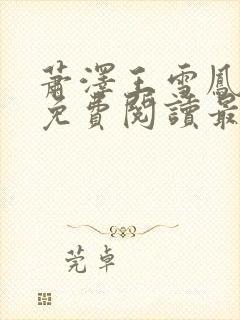 蕭澤王雪鳳
免費閱讀最
莞卓